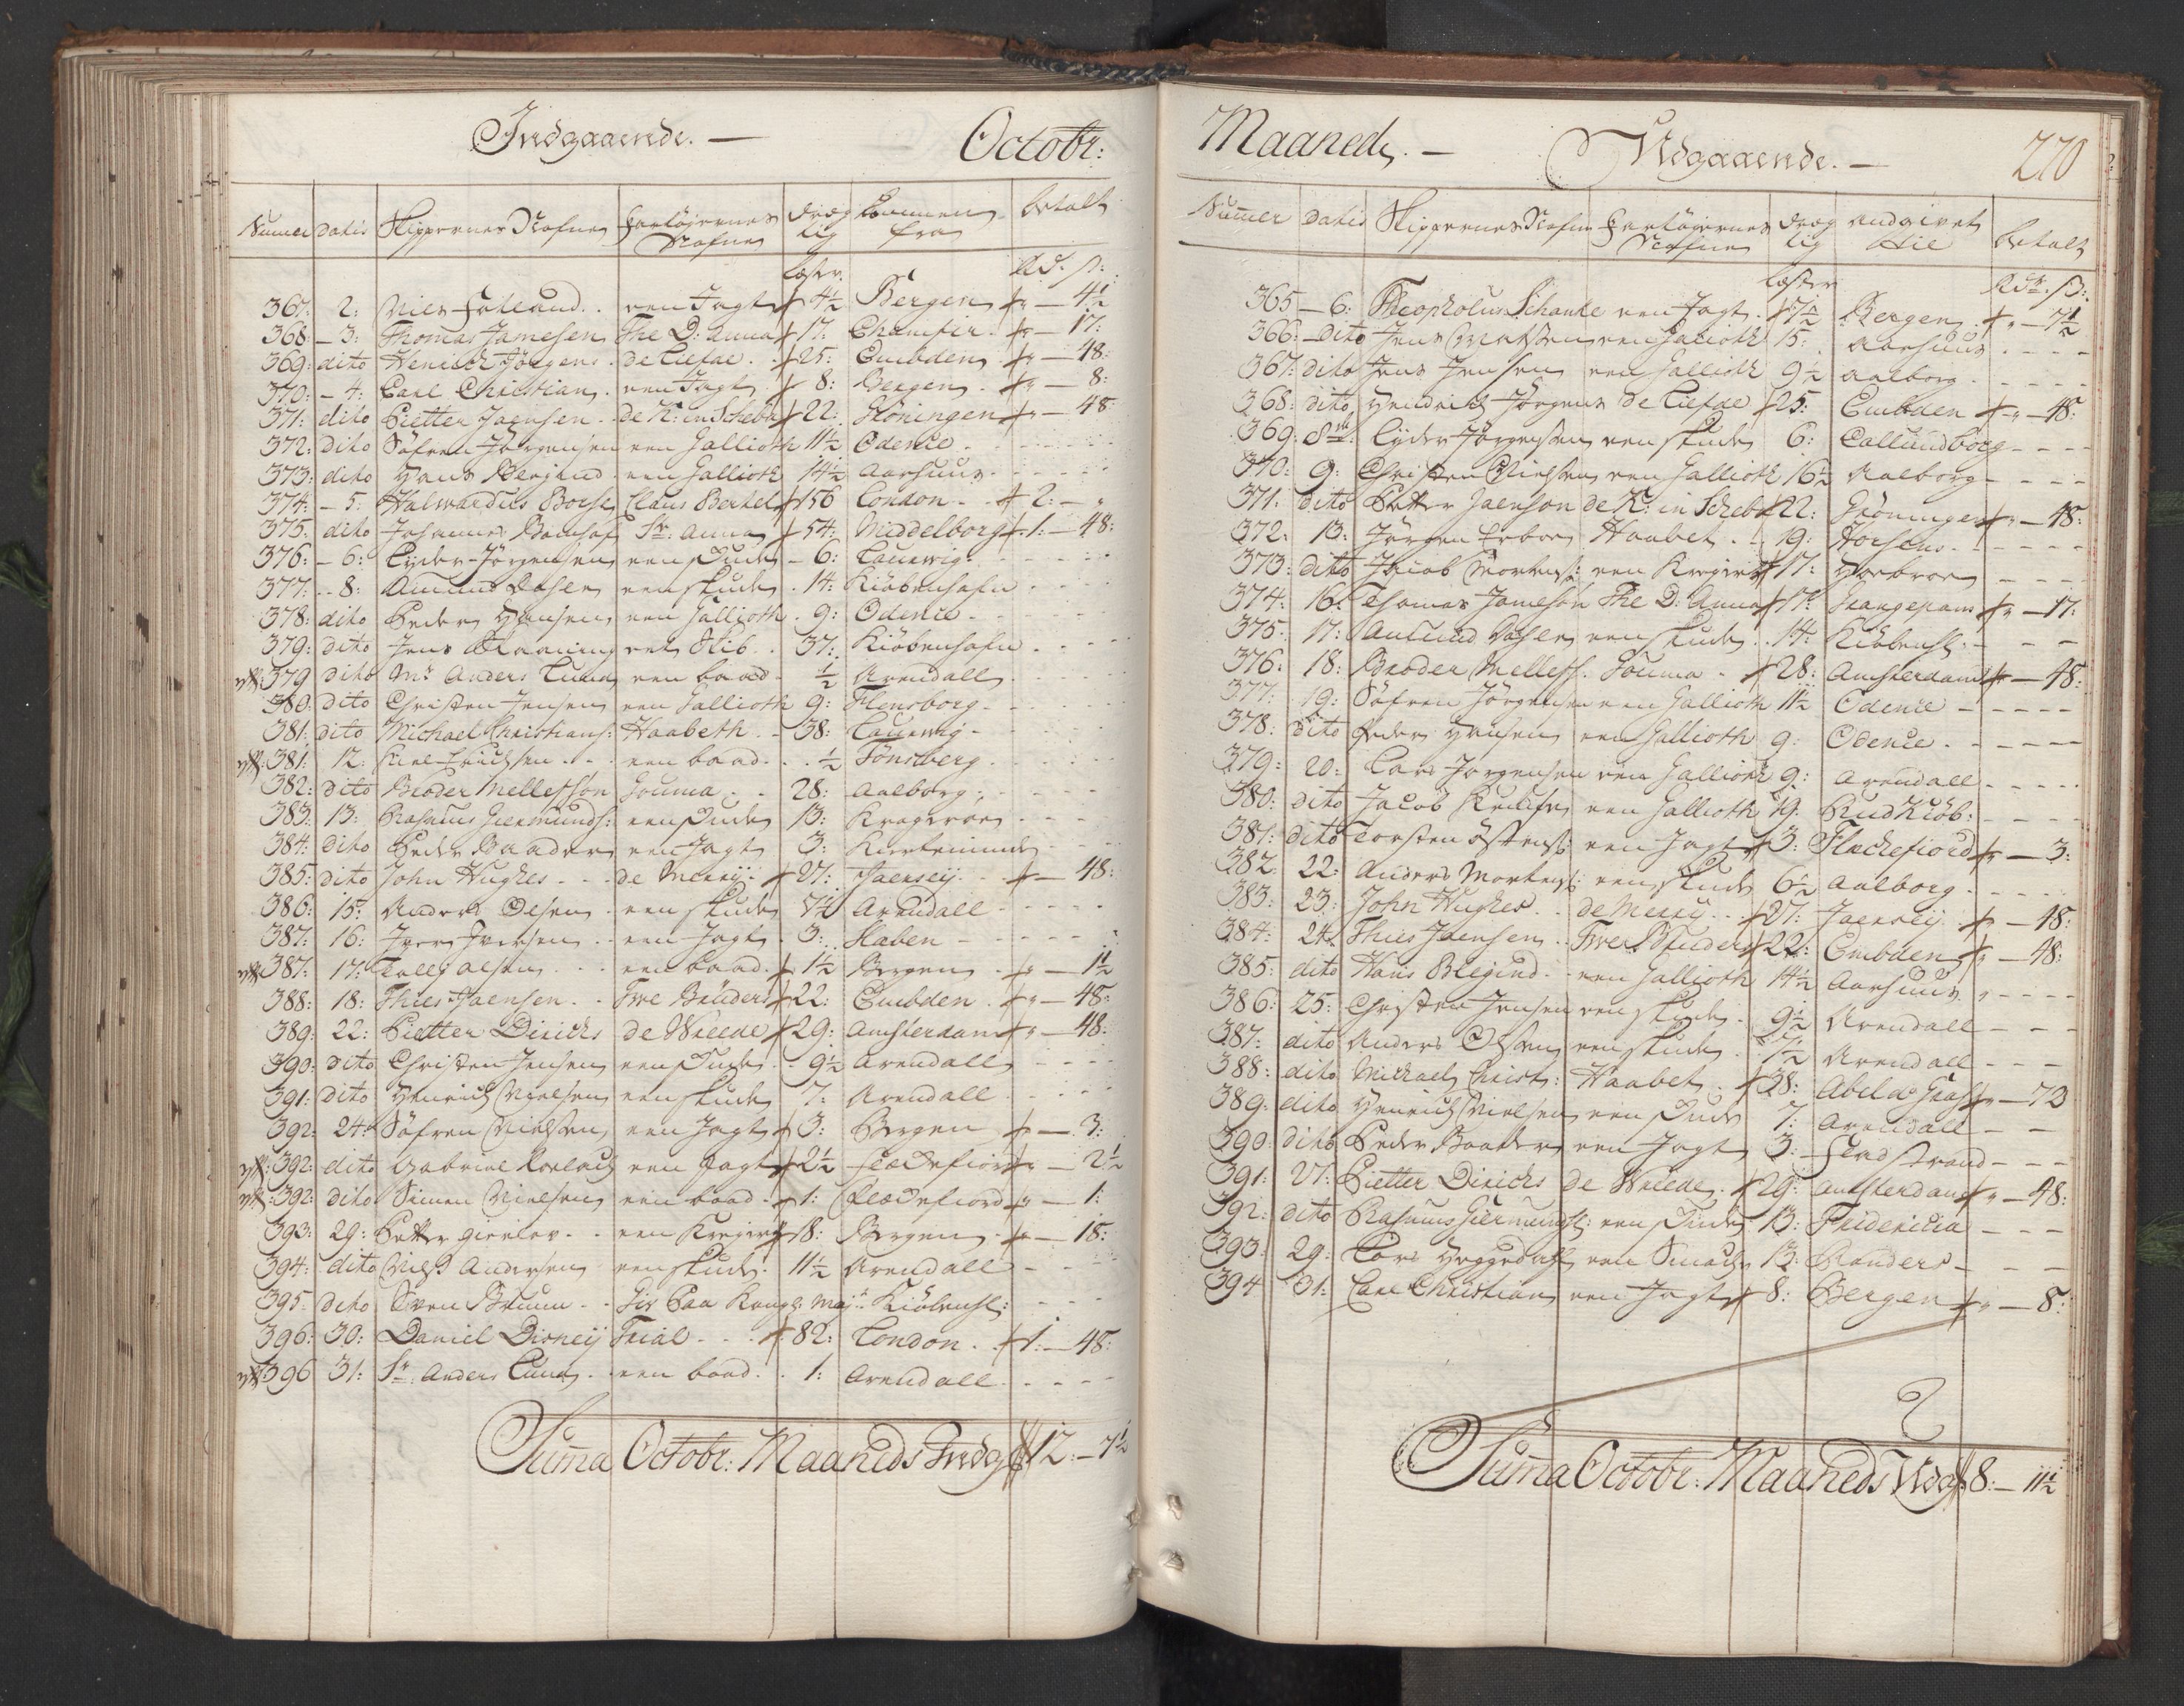 Indgaaende. — Octobr:
Numer Datis Skippernes Nafne Fartöyernes Nafne Dræg lig Kommen fra betalt
Læster. Rd. ß:
367: 2: Niels een Jagt 4½ Bergen " — 4½
368 — 3: Thomas Jamesen The D: Anna 17: " — 17:
369: dito Henrich Jörgens. de Liefde. 25: Embden " — 48:
370: — 4: Carl Christian. een Jagt 8: Bergen. " — 8:
371: dito Pietter Jaensen. de K: in Scheba 22: Gröningen " — 48
372: dito Söfren Jörgensen een Gallioth 11½ Odence.
373: dito Hans Blegind een Gallioth 14½ Aarhuus.
374: — 5: Halwardus Borse Claus Bertel 156 London. 2: — "
375: dito Johannes St: Anna 54: Middelborg 1: — 48:
376: — 6: Lyder Jörgensen een Skude — 6: Laurwig.
377: — 8: Amund Olsen een Skude 14: Kiöbenhafn
378: dito Peder Hansen een Gallioth. 9: Odence.
379: dito Jens et Skib. 37: Kiöbenhafn
379 dito Mr Anders Luna een baad. ½ Arendall
380: dito Christen Jensen een Gallioth 9: Flensborg.
381: dito Michael Christians: Haabeth. 38: Laurwig.
381: 12: een baad. ½ Tönsberg
382: dito Broder Mellesson Gouma 28: Aalborg
383: 13: Rasmus Giermunds: een Skude 13: Krageröe
384: dito Peder Baader een Jagt 3: Kierteminde
385: dito John Hughes de Merrij: 27: Jaerseij — 48:
386: 15: Anders Olsen een Skude 7½ Arendall
387: 16: Iver Iversen een Jagt. 3: Skaben
387: 17: Tolleg Olsen een baad. 1½ Bergen " — 1½
388: 18: Thies Jaensen. Twe Brüders 22: Embden. " — 48:
389: 22: Pietter Diricks de Vreede 29: Amsterdam " — 48:
390: dito Christen Jensen een Skude 9½ Arendall
391: dito Henrich Nielsen een Skude 7: Arendall
392: 24: Söfren Nielsen een Jagt 3: Bergen — 3:
392: dito Gabriel een Jagt 2½ Fleckefiord " — 2½
392: dito Simen Nielsen een baad. 1: Fleckefiord " — 1:
393: 29: Petter een Kreyert 18: Bergen. " — 18:
394: dito Niels Andersen een Skude 11½ Arendall
395 dito Sven Bruun Giv Paa Kongl: May: Kiöbenh:
396: 30: Daniel Disney Trial 82: London. 1: — 48:
396 31: Sr: Anders Luna een baad. 1: Arendall
Summa Octobr: Maaneds Indg 12: — 7½
Maaned. — Udgaaende. — 270
Numer Datis Skippernes Nafne Fartöyernes Nafne Dræg lig Andgivet til betalt
Læster Rdr. ß:
365 — 6: Theopholus Schanke een Jagt 7½ Bergen " — 7½
366: — Dito Jens Madsen een Gallioth 15: Aarhuus
367: dito Jens Jensen een Gallioth 9½ Aalborg
368: dito Hendrich Jörgens de Liefde 25: Embden " — 48:
369: 8de: Lyder Jörgensen een Skude 6: Callundborg
370: 9: Christen Nielsen een Gallioth 16½ Aalborg
371: dito Petter Jaenson de K: in Scheba 22: Gröningen " — 48:
372: 13: Jörgen Haabet. 19: Horsens.
373: dito Jacob Mortens: een Kreyert 17: Hobroe
374: 16: Thomas Jameson The D: Anna 17: Grangepam " — 17:
375: 17: Amund Olsen een Skude 14: Kiöbenh:
376: 18: Broder Melless. Gouma 28: Amsterdam " — 48:
377: 19: Söfren Jörgensen een Gallioth 11½ Odence
378: dito Peder Hansen een Gallioth 9: Odence
379: 20: Lars Jörgensen een Gallioth 9: Arendall
380: dito Jacob een Gallioth 19: Rudkiöb:
381: dito Torsten Östens: een Jagt 3: Fleckefiord " — 3:
382: 22: Anders Mortens: een Skude 6½ Aalborg
383: 23: John Hughes de Merrij 27: Jaerseij " — 48:
384: 24: Thies Jaensen Twe Brüders 22: Embden " — 48:
385: dito Hans Blegind een Gallioth 14½ Aarhuus
386: 25: Christen Jensen een Skude 9½ Arendall
387: dito Anders Olsen een Skude 7½ Arendall
388: dito Michael Christ: Haabet 38: " — 72
389: dito Henrich Nielsen een Skude 7: Arendall
390: dito Peder Baader een Jagt 3: Fladstrand
391: 27: Pietter Diricks de Vreede 29: Amsterdam " — 48:
392: dito Rasmus Giermunds: een Skude 13: Fridericia
393: 29: Lars een Smack 13: Randers
394 31: Carl Christian een Jagt 8: Bergen " — 8:
Summa Octobr: Maaneds Udg 8: — 11½